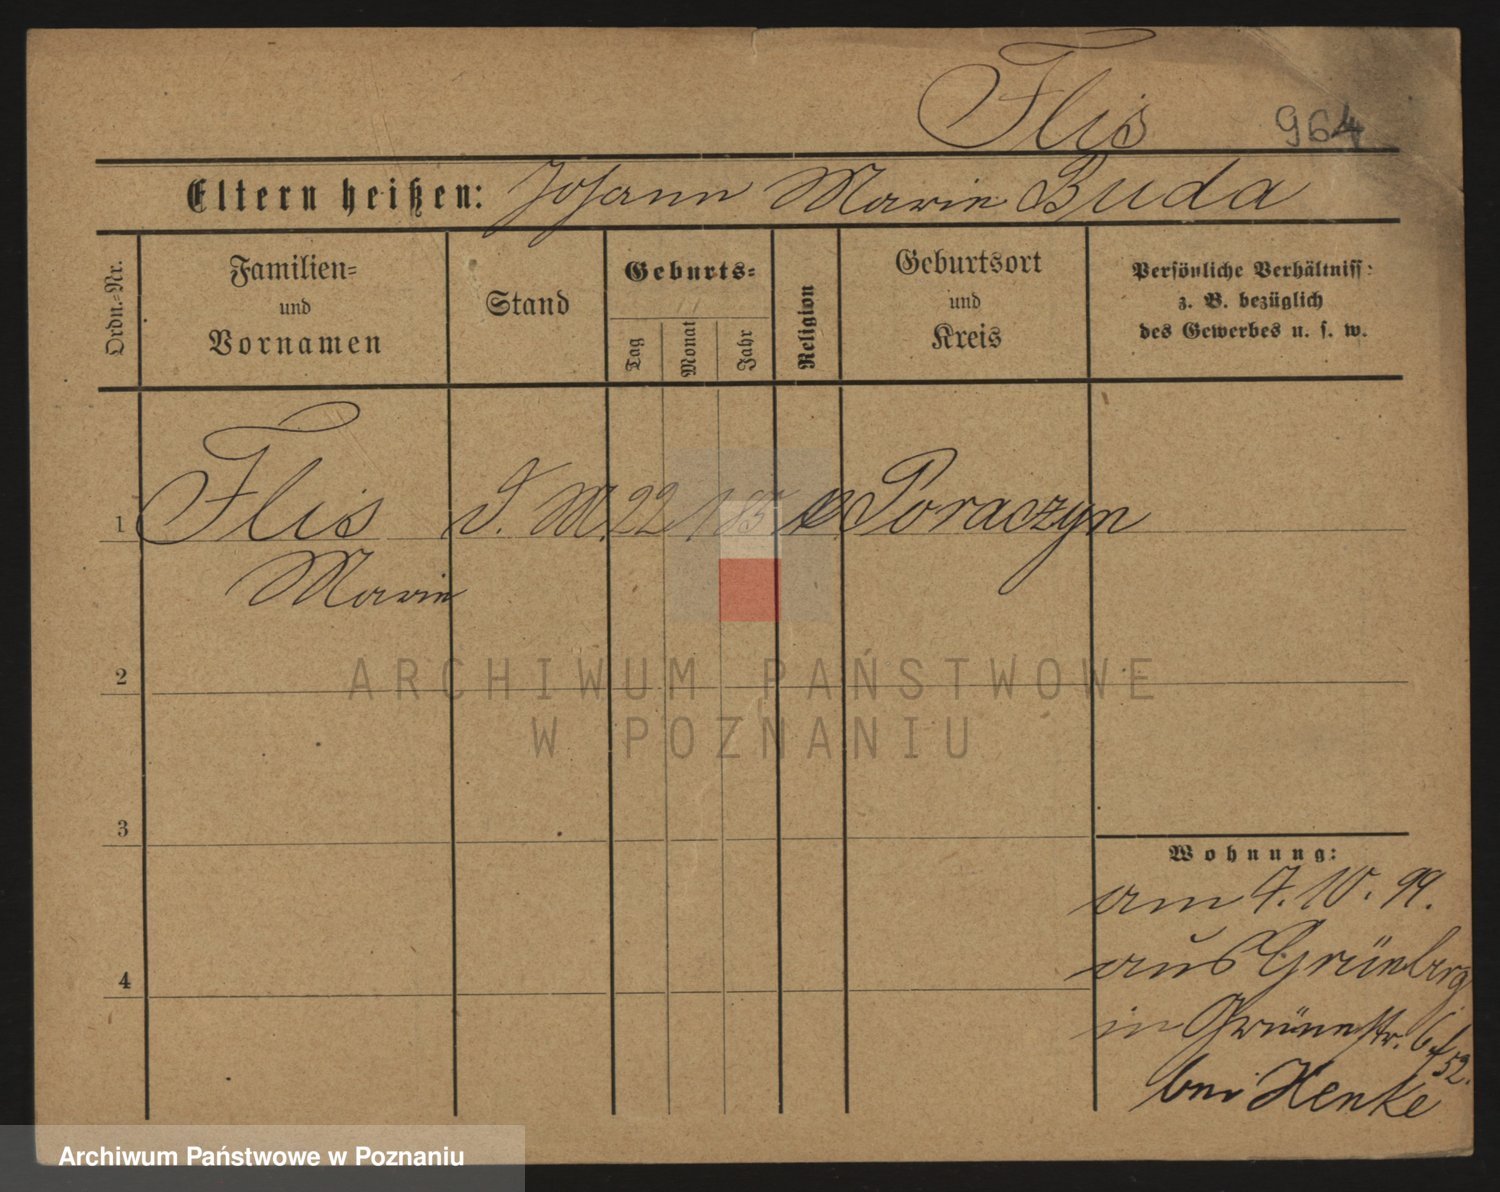 Flis 964
Eltern heißen: Johann Marie Buda
Ordn.-Nr.
Familien-
und
Vornamen
Stand
Geburts-
Tag
Monat
Jahr
Religion
Geburtsort
und
Kreis
Persönliche Verhältniss:
z. B. bezüglich
des Gewerbes u. s. w.
1 Flis D. M. 22 1 Poraczyn
Marie
2
3
4
Wohnung:
am 7. 10. 99.
aus Grünberg
in Grünestr. 6
52.
bei Henke
ARCHIWUM PAŃSTWOWE
W POZNANIU
Archiwum Państwowe w Poznaniu